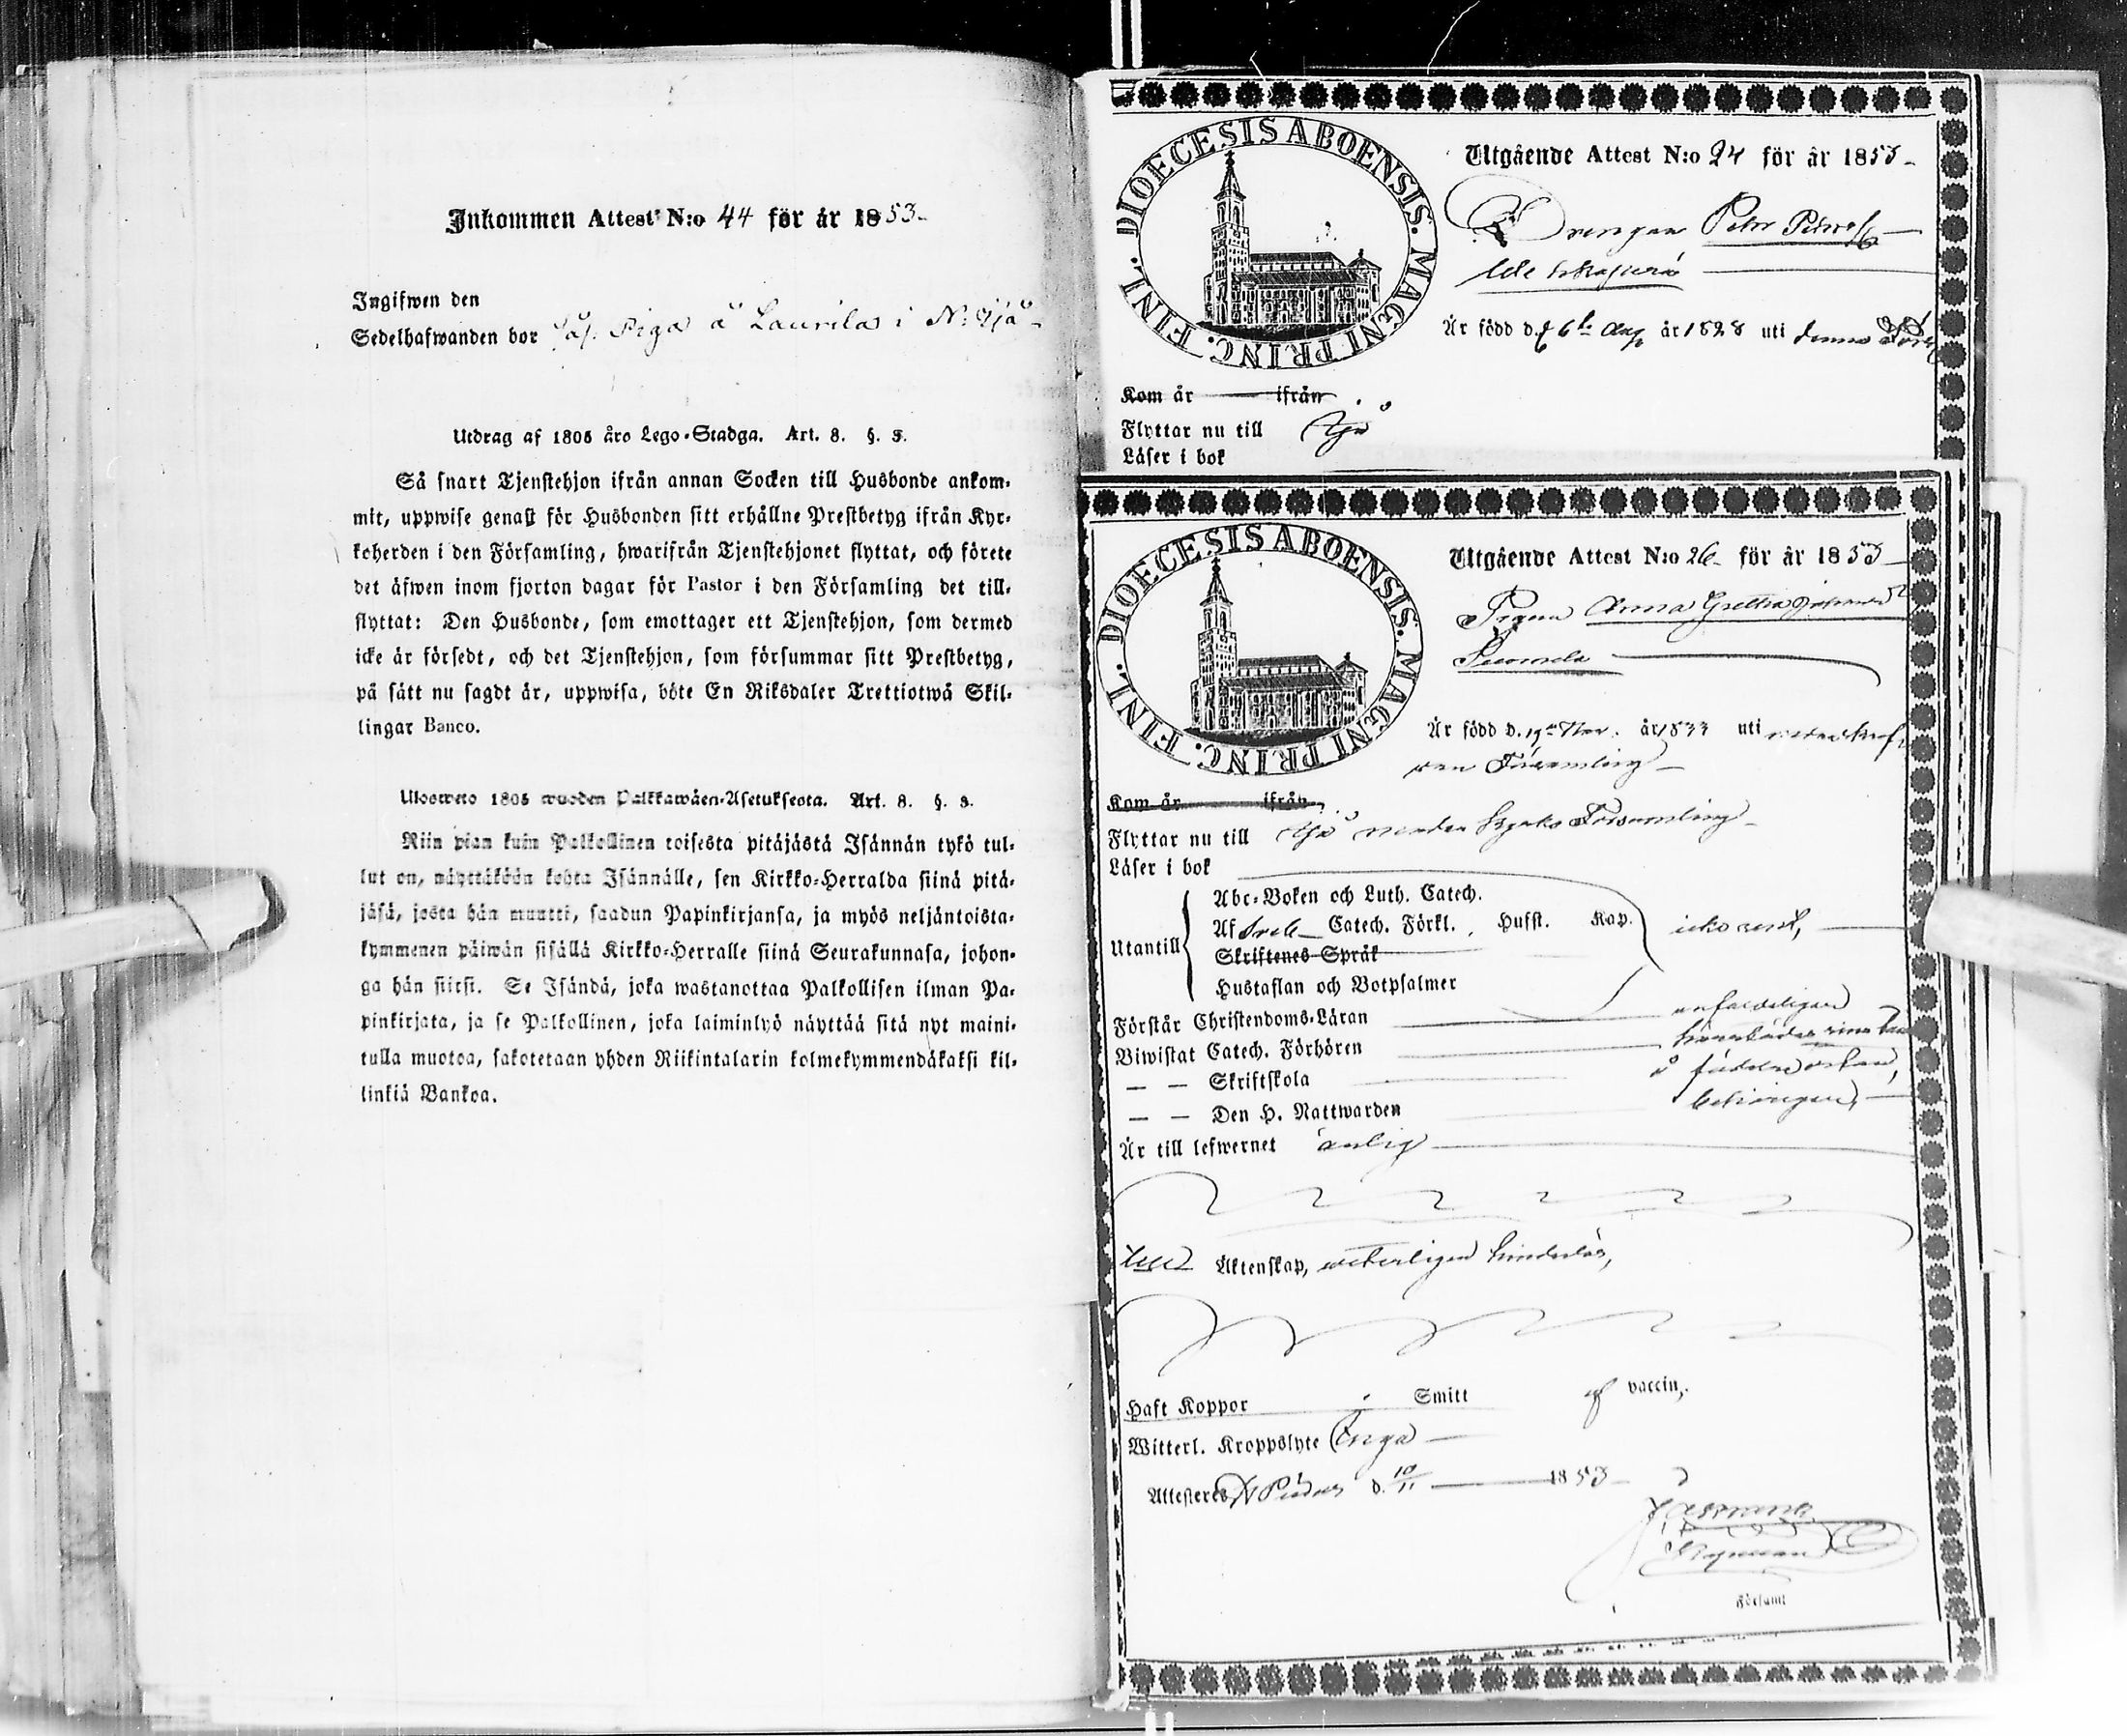 Inkommen Attest N:o 44 för år 1853
Ingifwen den
Sedelhafwanden bor såf. Piga å Laurila i N:
Utdrag af 1805 års Lego-Stadga. Art. 8. §. 3.
Så snart Tjenstehjon ifrån annan Socken till Husbonde ankom-
mit, uppwise genast för Husbonden sitt erhållne Prestbetyg ifrån Kyr-
koherden i den Församling, hwarifrån Tjenstehjonet flyttat, och förete
det äfwen inom fjorton dagar för Pastor i den Församling det till-
flyttat: Den Husbonde, som emottager ett Tjenstehjon, som dermed
icke är försedt, och det Tjenstehjon, som försummar sitt Prestbetyg,
på sätt nu sagdt är, uppwisa, böte En Riksdaler Trettiotwå Skil-
lingar Banco.
Ulosweto 1805 wuoden Palkkawäen-Asetuksesta. Art. 8. §. 3.
Niin pian kuin Palkollinen toisesta pitäjästä Isännän tykö tul-
lut on, näyttäköön kohta Isännälle, sen Kirkko-Herralda siinä pitä-
jäsä, josta hän muutti, saadun Papinkirjansa, ja myös neljäntoista-
kymmenen päiwän sisällä Kirkko-Herralle siinä Seurakunnasa, johon-
ga hän siirsi. Se Isändä, joka wastanottaa Palkollisen ilman Pa-
pinkirjata, ja se Palkollinen, joka laiminlyö näyttää sitä nyt maini-
tulla muotoa, sakotetaan yhden Riikintalarin kolmekymmendäkaksi kil-
linkiä Bankoa.
DIOECESIS ABOENSIS. MAGNI PRINC. FINL.
Utgående Attest N:o 24 för år 1853
Drengen Petter
Är född d. 6te Aug år 1828 uti denna
Kom år ifrån
Flyttar nu till
Läser i bok
DIOECESIS ABOENSIS. MAGNI PRINC. FINL.
Utgående Attest N:o 26 för år 1853
Pigan Anna Gretha
Suomela
Är född d. 19de Nov. år 1833 uti
Församling
Kom år ifrån
Flyttar nu till Församling
Läser i bok
Abc-Boken och Luth. Catech.
Utantill Af Catech. Förkl. Husst. Kap.
Skriftenes Språk
Hustaflan och Botpsalmer
Förstår Christendoms-Läran
Biwistat Catech. Förhören
— — Skriftskola
— — Den H. Nattwarden behörigen,
Är till lefwernet ärlig
Till Äktenskap, weterligen hinderlös,
Haft Koppor Smitt af vaccin,
Witterl. Kroppslyte Inga
Attesteras d. 10/11 1853
Församl